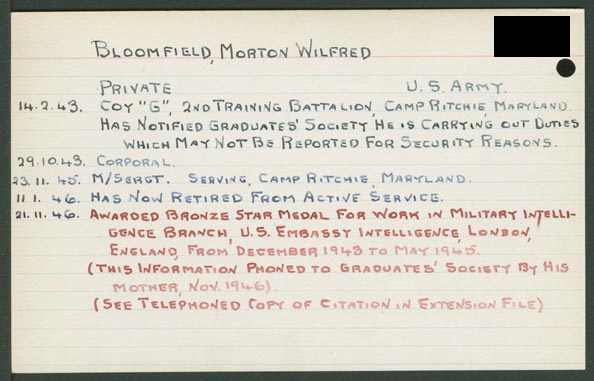 BLOOMFIELD, MORTON WILFRED
PRIVATE U.S. ARMY.
14.2.43. COY "G", 2ND TRAINING BATTALION, CAMP RITCHIE, MARYLAND.
HAS NOTIFIED GRADUATES' SOCIETY HE IS CARRYING OUT DUTIES
WHICH MAY NOT BE REPORTED FOR SECURITY REASONS.
29.10.43. CORPORAL.
23.11.45. M/SERGT. SERVING, CAMP RITCHIE, MARYLAND.
11.1.46. HAS NOW RETIRED FROM ACTIVE SERVICE.
21.11.46. AWARDED BRONZE STAR MEDAL FOR WORK IN MILITARY INTELLI-
GENCE BRANCH, U.S. EMBASSY INTELLIGENCE, LONDON,
ENGLAND, FROM DECEMBER 1943 TO MAY 1945.
(THIS INFORMATION PHONED TO GRADUATES' SOCIETY BY HIS
MOTHER, NOV. 1946).
(SEE TELEPHONED COPY OF CITATION IN EXTENSION FILE)